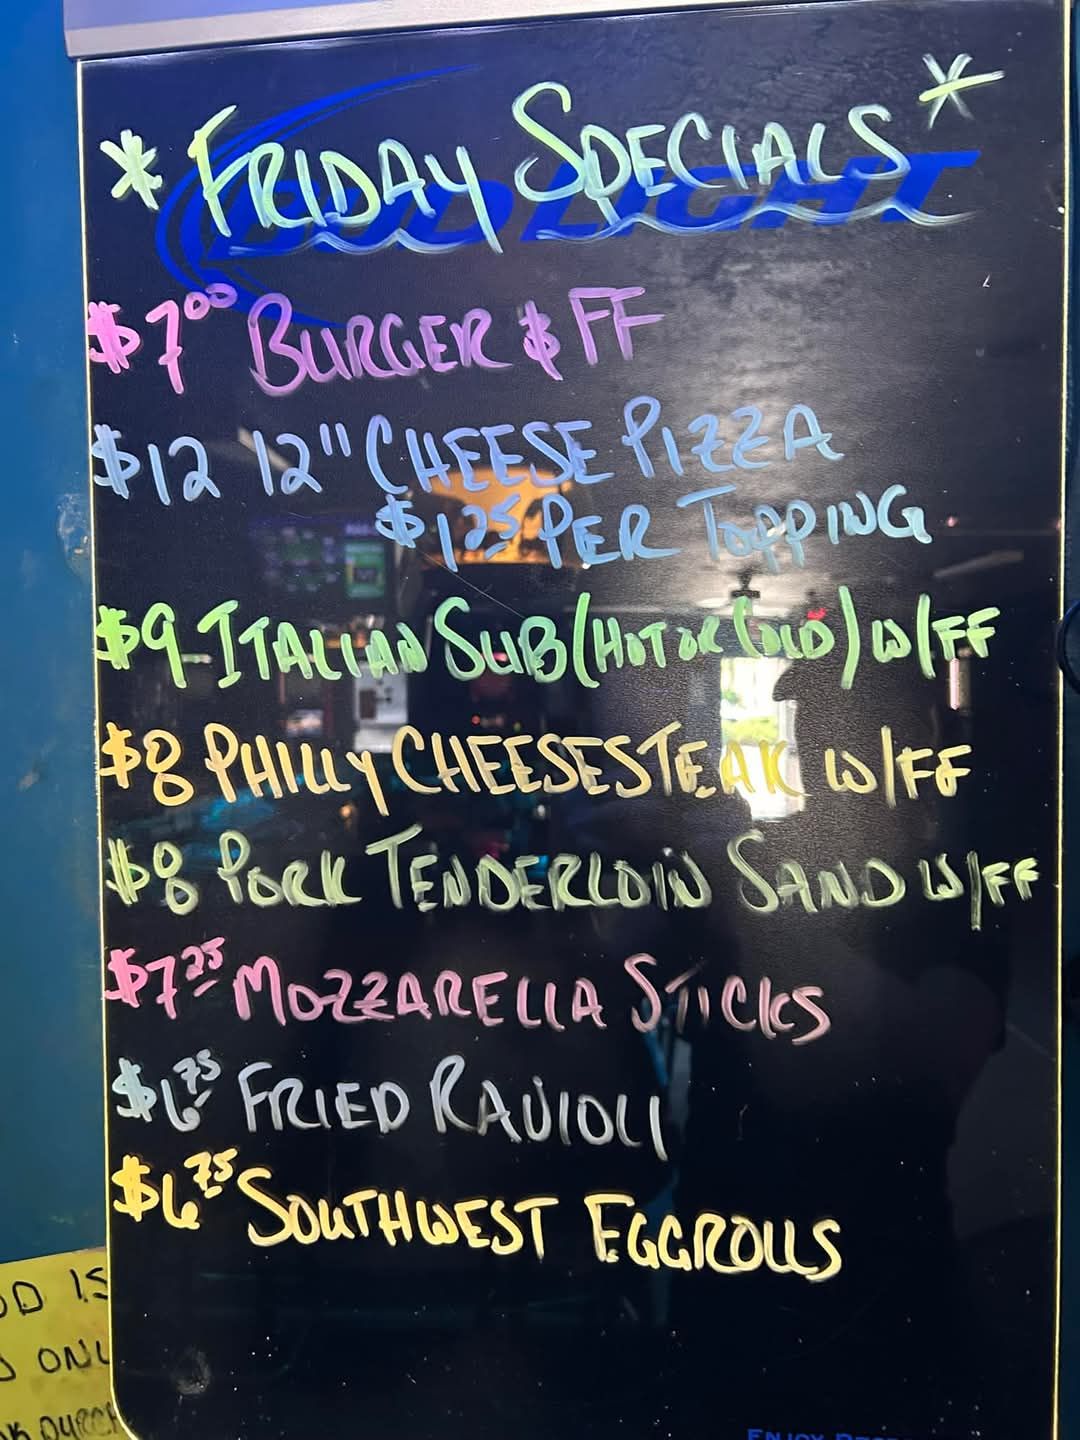 * FRIDAY SPECIALS *
BUD LIGHT
$7.00 BURGER & FF
$12 12" CHEESE PIZZA
$1.25 PER TOPPING
$9 ITALIAN SUB (HOT OR COLD) W/FF
$8 PHILLY CHEESESTEAK W/FF
$8 PORK TENDERLOIN SAND W/FF
$7.25 MOZZARELLA STICKS
$6.75 FRIED RAVIOLI
$6.75 SOUTHWEST EGGROLLS
IS
ENJOY